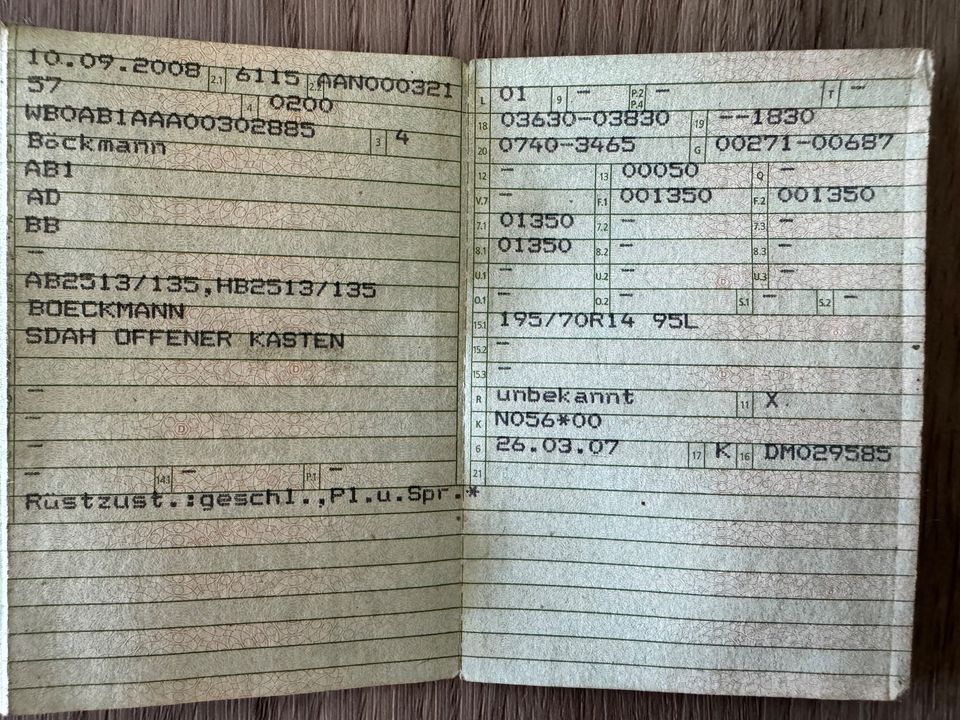 10.09.2008 2.1 6115 AAN000321
57 4 0200
WB0AB1AAA00302885 3 4
Böckmann
AB1
AD
BB
–
AB2513/135,HB2513/135
BOECKMANN
SDAH OFFENER KASTEN
–
–
–
– 14.1 – P.1 –
Rüstzust.:geschl.,Pl.u.Spr.*
L 01 9 – P.2 P.4 – T –
18 03630-03830 19 --1830
20 0740-3465 G 00271-00687
12 – 13 00050 Q –
V.7 – F.1 001350 F.2 001350
7.1 01350 7.2 – 7.3 –
8.1 01350 8.2 – 8.3 –
U.1 – U.2 – U.3 –
O.1 – O.2 – S.1 – S.2 –
15.1 195/70R14 95L
15.2 –
15.3 –
R unbekannt 11 X
K N056*00
6 26.03.07 17 K 16 DM029585
21